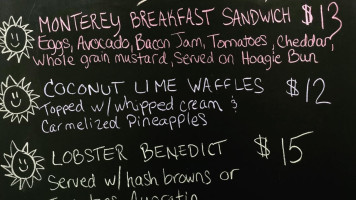 MONTEREY BREAKFAST SANDWICH $13
Eggs, Avocado, Bacon Jam, Tomatoes, Cheddar,
whole grain mustard, Served on Hoagie Bun
COCONUT LIME WAFFLES $12
Topped w/ whipped cream &
Carmelized Pineapples
LOBSTER BENEDICT $15
Served w/ hash browns or